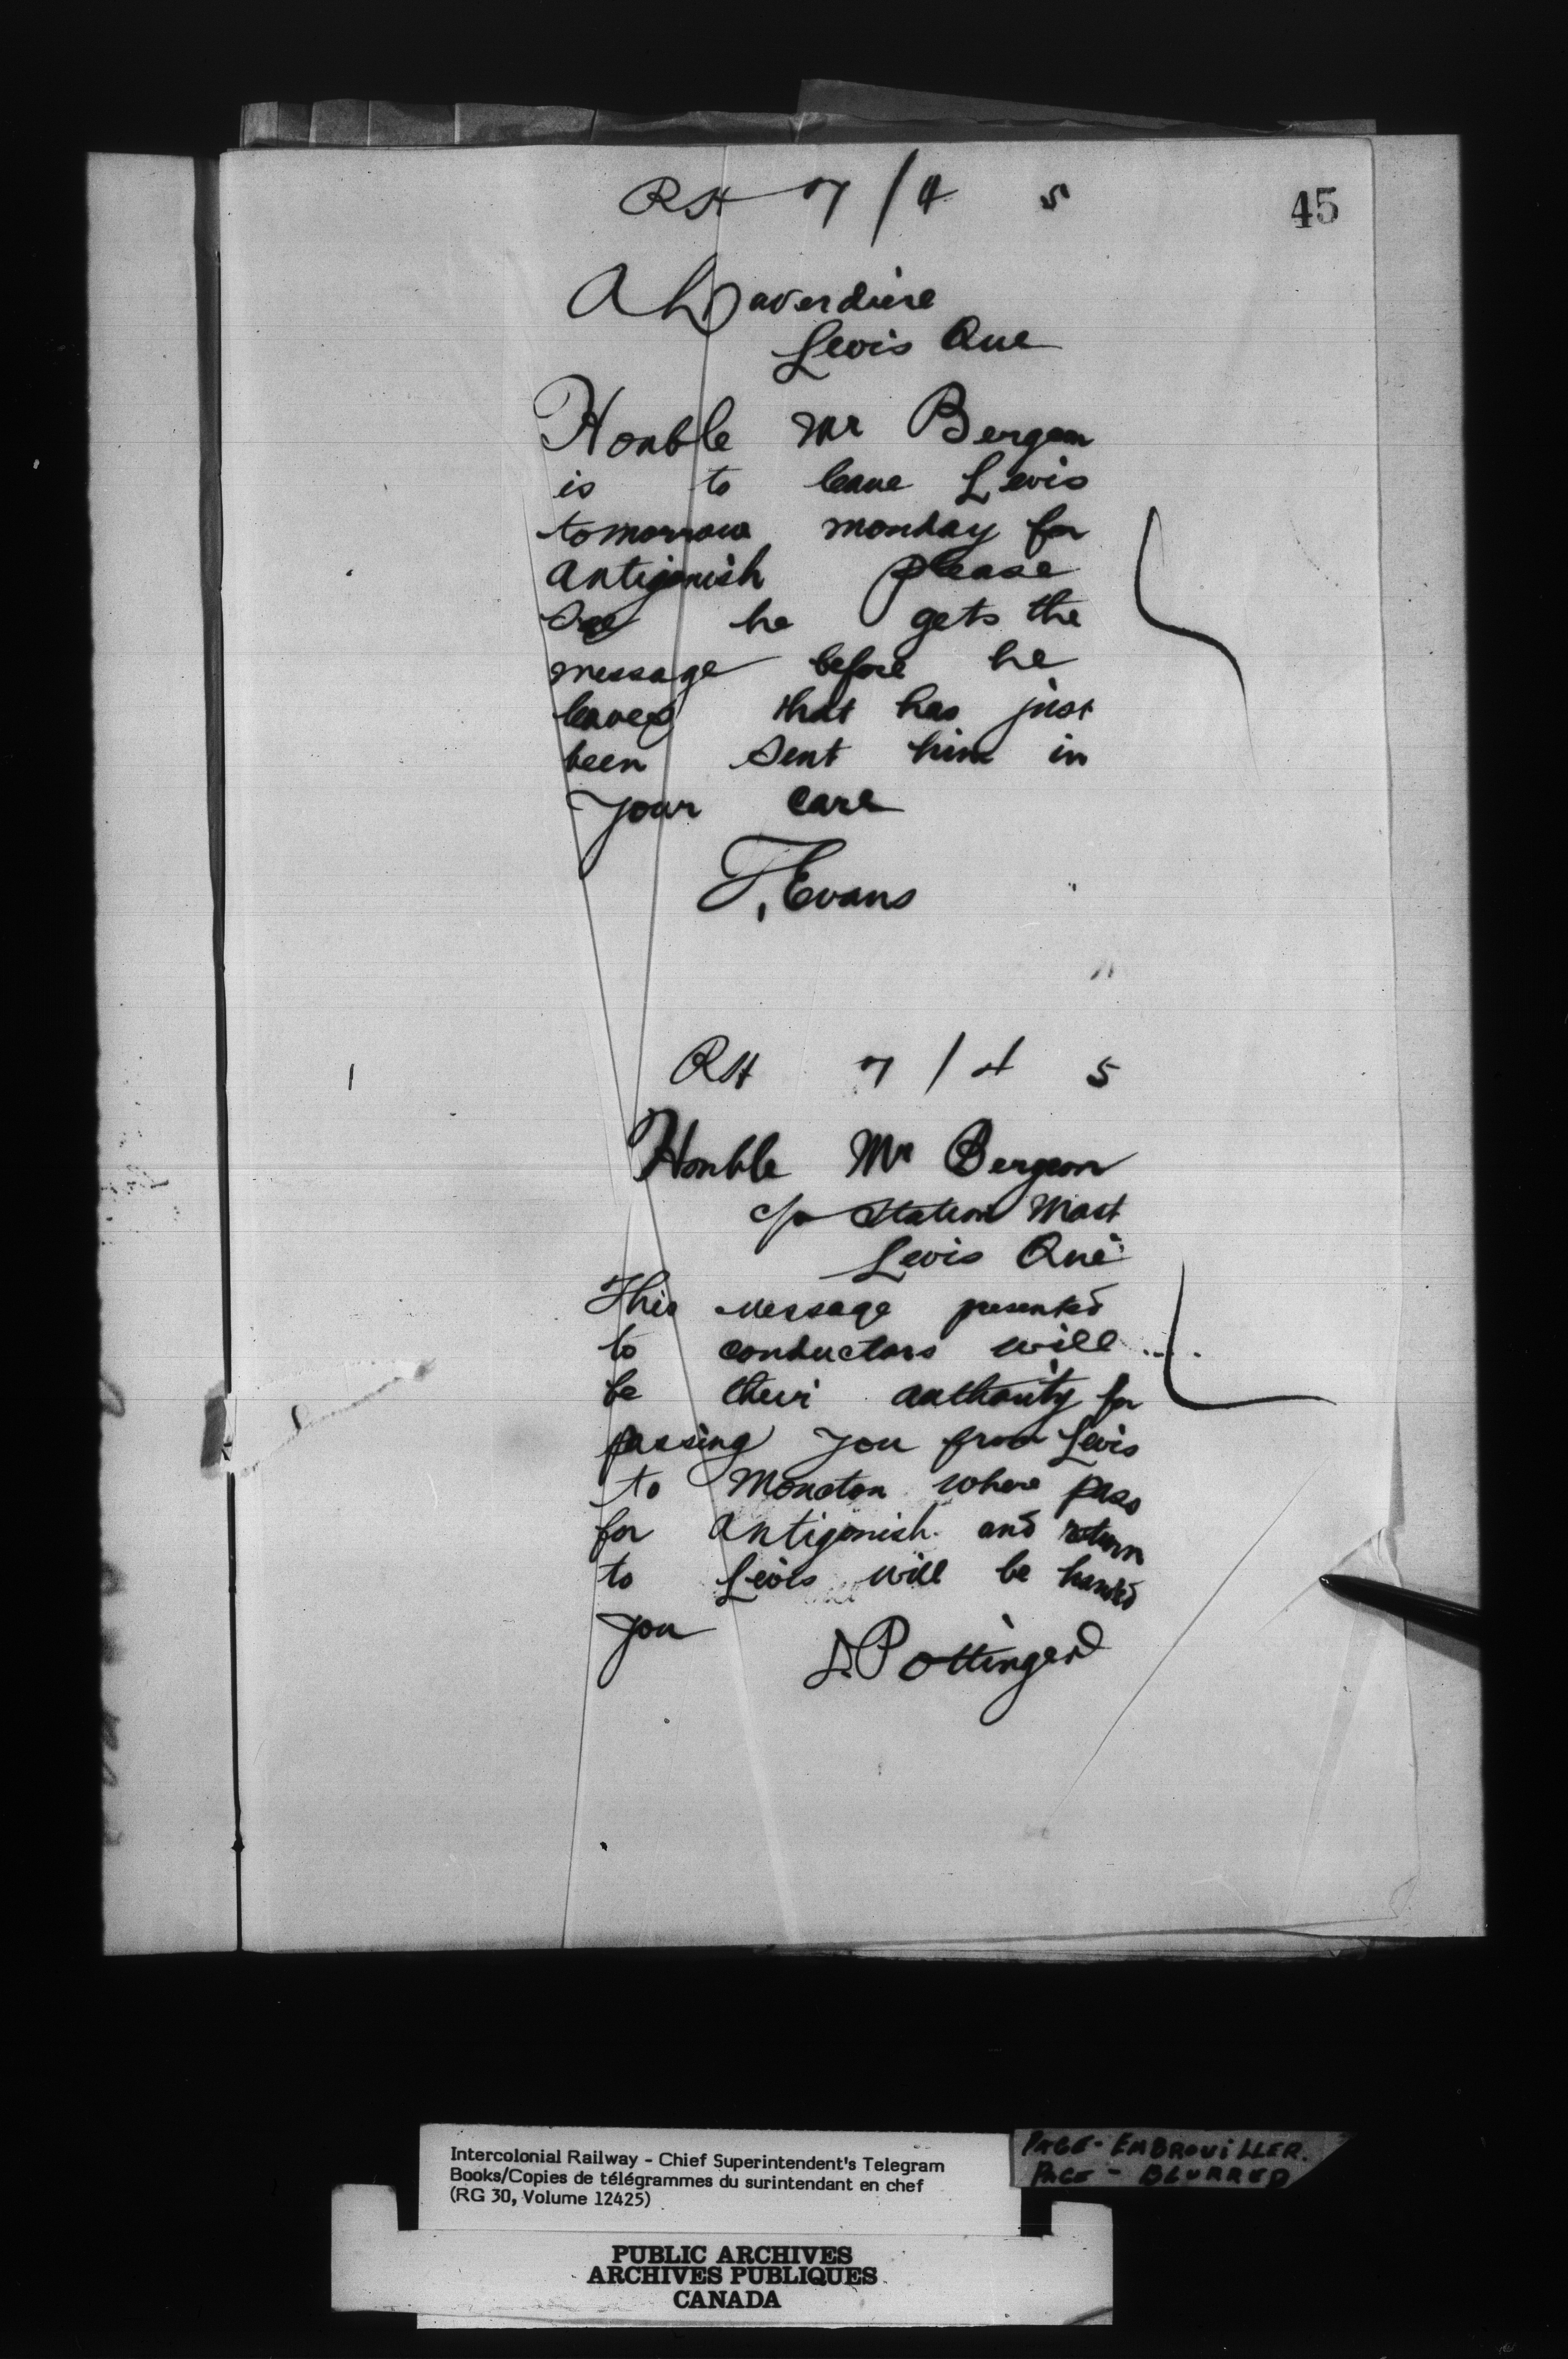 RH 7/4 5
45
A Laverdiere
Levis Que
Honble Mr Bergeron
is to leave Levis
tomorrow monday for
Antigonish please
See he gets the
message before he
leaves that has just
been sent him in
your care
T. Evans
RH 7/4 5
Honble Mr Bergeron
c/o Station Mast
Levis Que
This message presented
to conductors will
be their authority for
passing you from Levis
to Moncton where pass
for Antigonish and return
to Levis will be handed
you
D. Pottinger
Intercolonial Railway - Chief Superintendent's Telegram
Books/Copies de télégrammes du surintendant en chef
(RG 30, Volume 12425)
PAGE - EMBROUILLER.
PAGE - BLURRED
PUBLIC ARCHIVES
ARCHIVES PUBLIQUES
CANADA